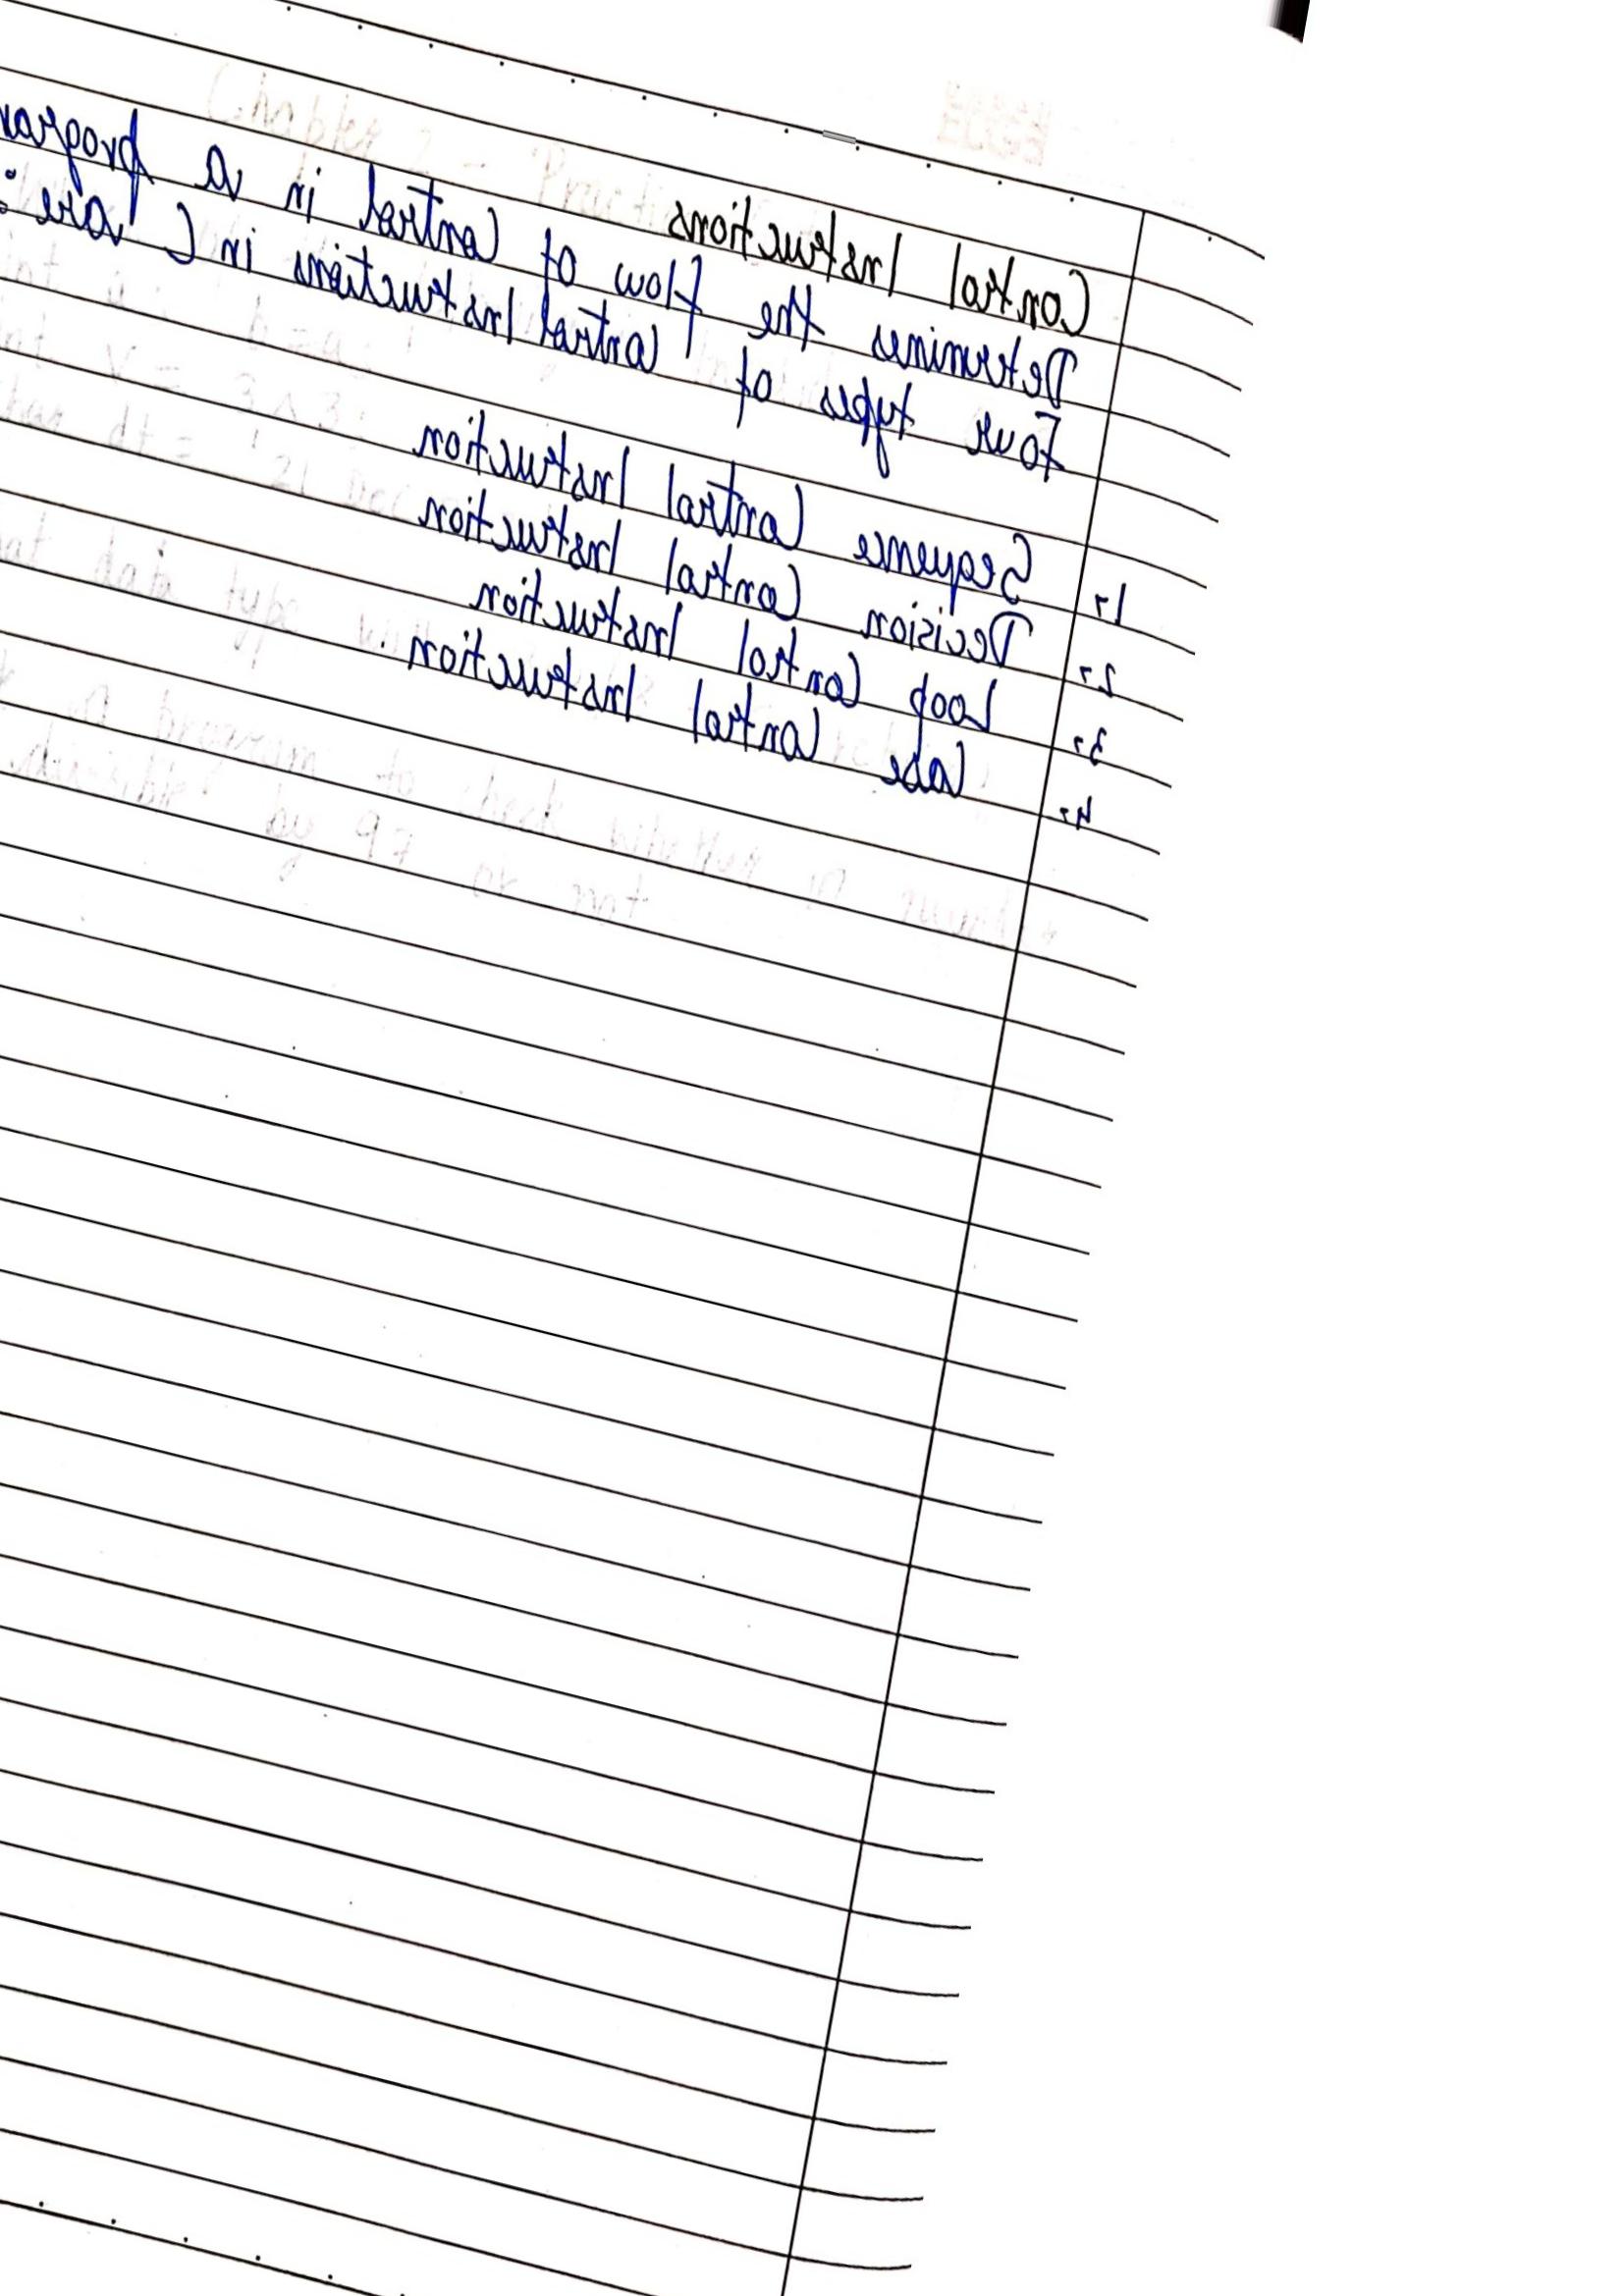 Control Instructions
Determines the flow of Control in a program
Four types of Control Instructions in C are :
1. Sequence Control Instruction
2. Decision Control Instruction
3. Loop Control Instruction
4. Case Control Instruction